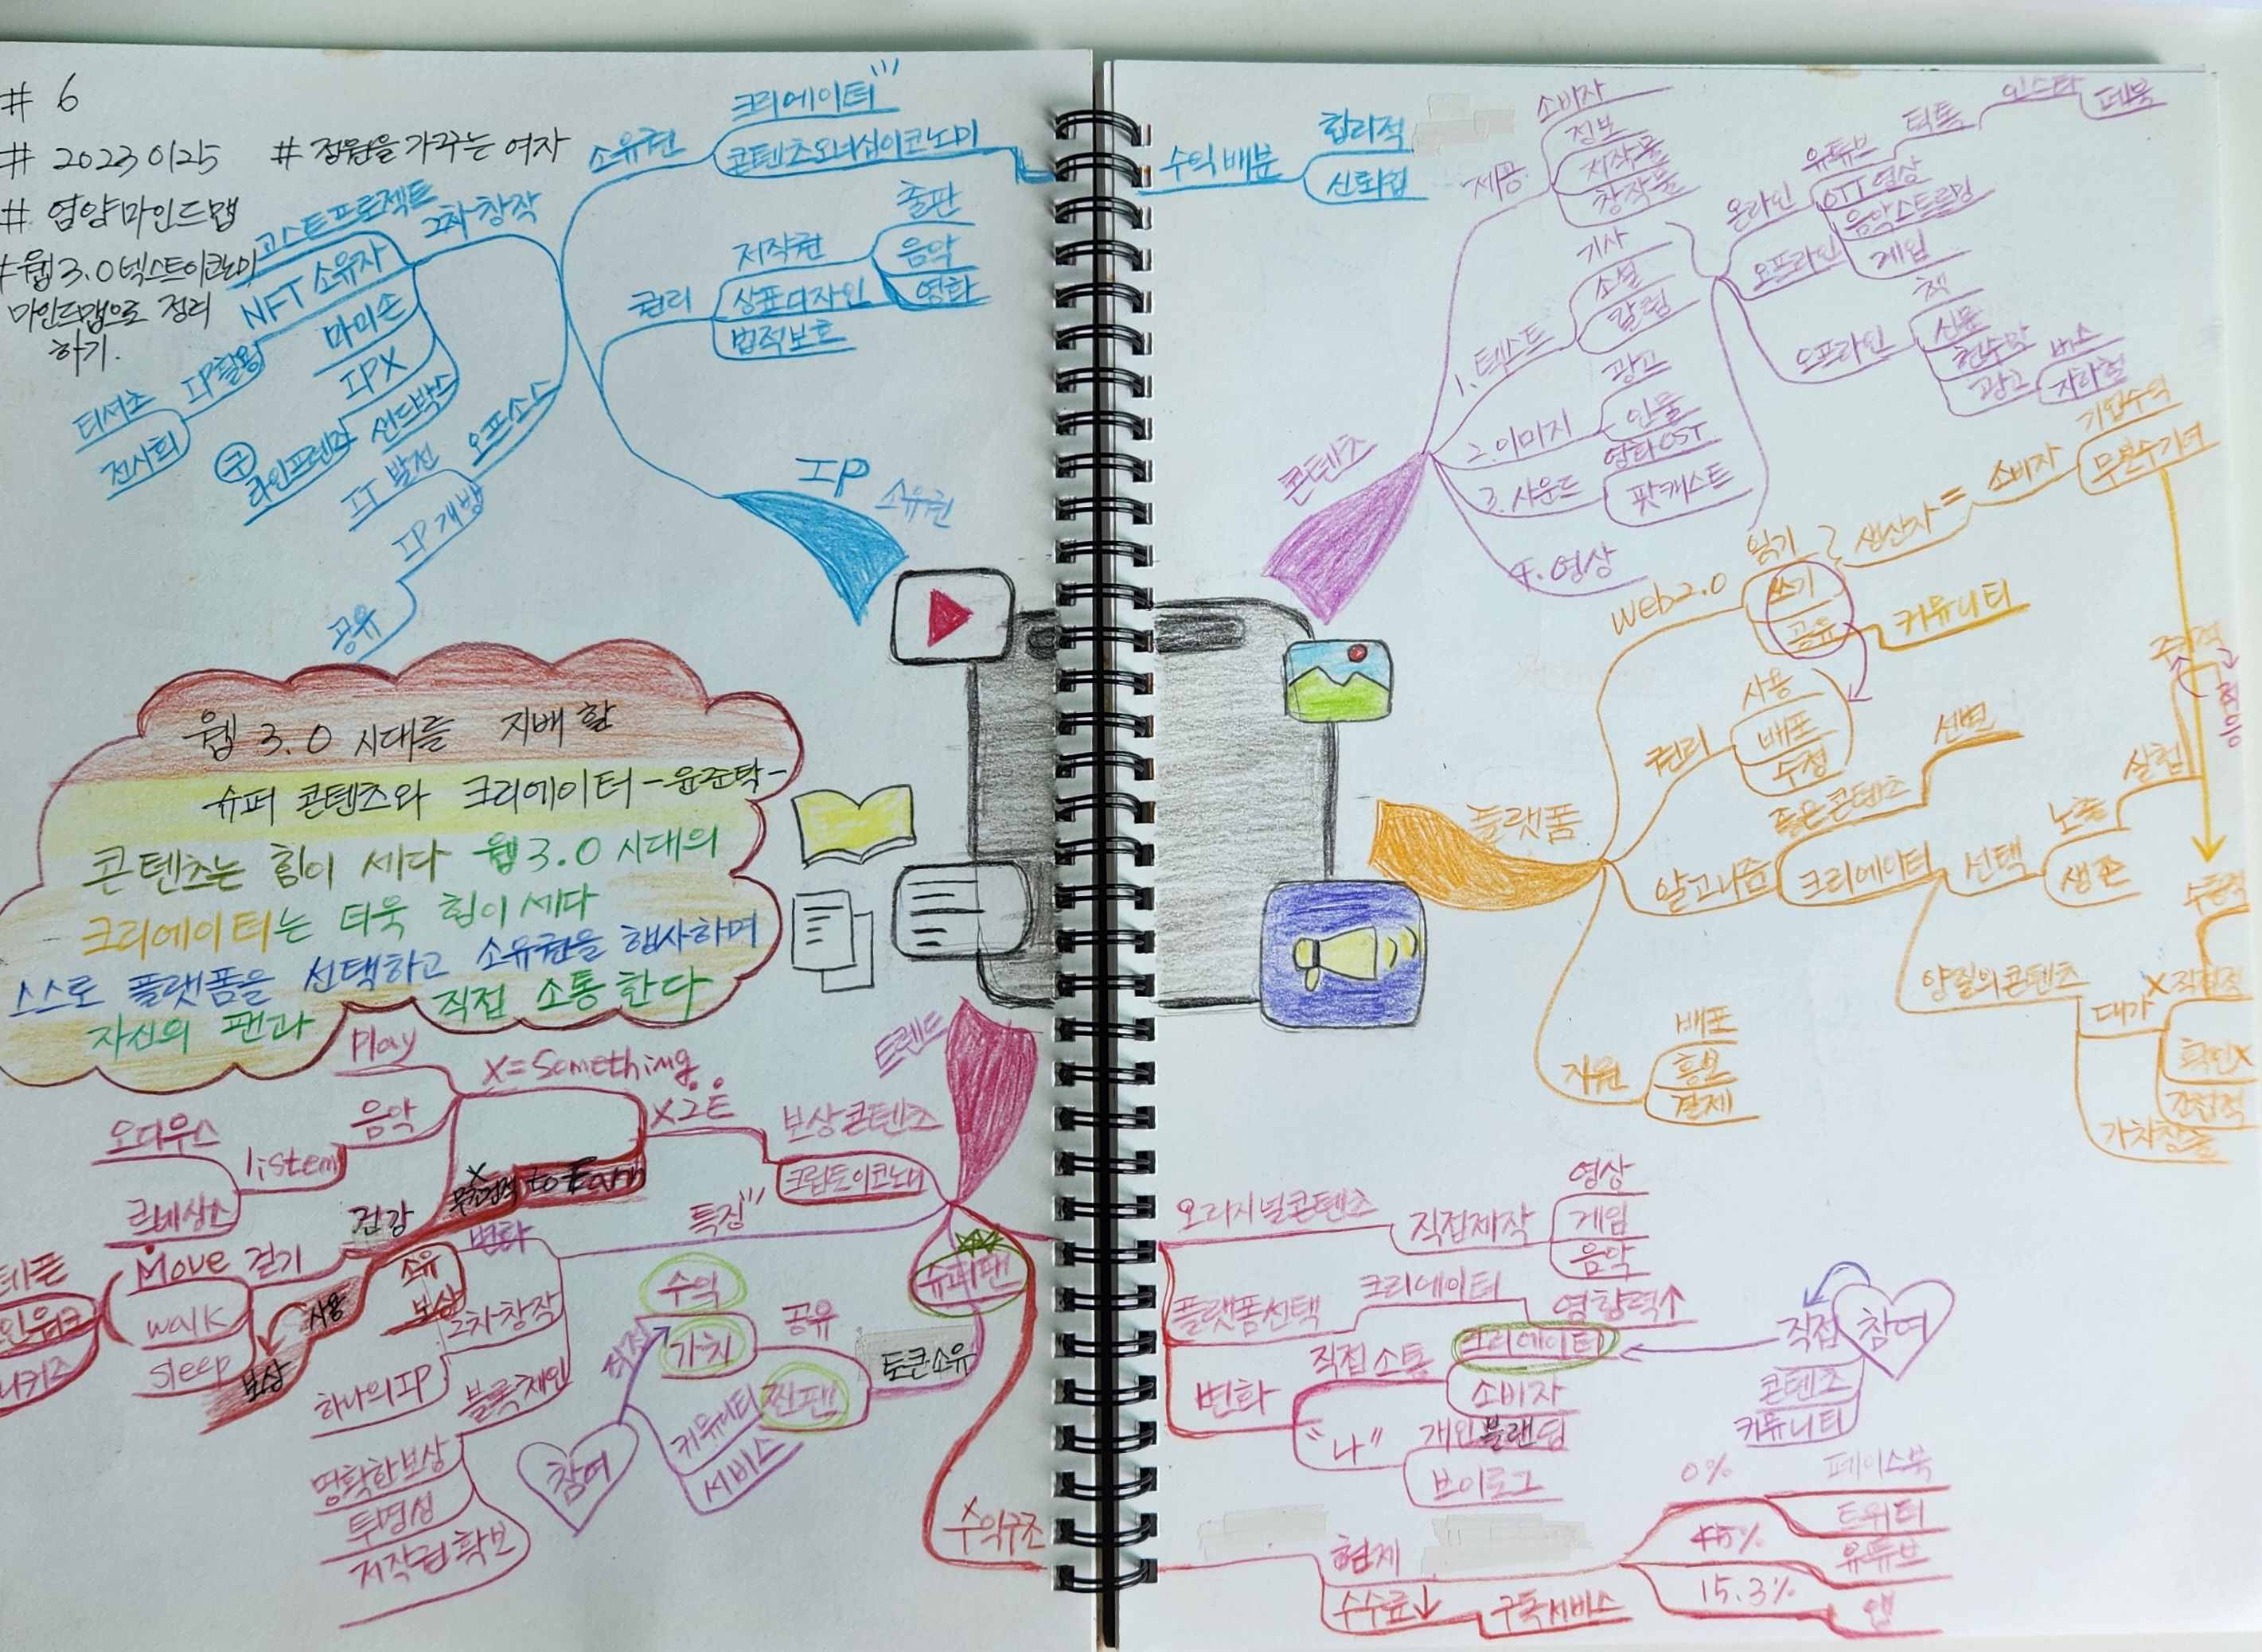 # 6
# 20230125 # 정원을 가꾸는 여자
# 염양마인드맵
#웹3.0넥스트이코노미
마인드맵으로 정리
하기.
크리에이터
소유권
콘텐츠오너십이코노미
수익배분
합리적
신뢰쉽
저작권
권리
상표디자인
법적보호
출판
음악
영화
2차창작
고스트프로젝트
NFT 소유자
IP활용
티셔츠
전시회
마미손
IPX
구
라인프렌즈
샌드박스
오픈소스
IT 발전
IP개방
공유
IP
소유권
웹 3.0 시대를 지배할
슈퍼 콘텐츠와 크리에이터 -윤준탁-
콘텐츠는 힘이 세다 웹3.0 시대의
크리에이터는 더욱 힘이세다
스스로 플랫폼을 선택하고 소유권을 행사하며
자신의 팬과 직접 소통한다
콘텐츠
제공
소비자
정보
저작물
창작물
1.텍스트
기사
소설
칼럼
2.이미지
광고
인물
3.사운드
영화OST
팟캐스트
4.영상
온라인
유튜브
틱톡
인스타
페북
OTT영상
음악스트리밍
게임
오프라인
오프라인
책
신문
현수막
광고
버스
지하철
플랫폼
Web2.0
읽기
쓰기
공유
생산자 =
소비자
기업수익
무한수기녀
커뮤니티
권리
사용
배포
수정
좋은콘텐츠
선별
알고리즘
크리에이터
선택
노출
생존
실험
수동적
양질의콘텐츠
대가
X직접적
확인X
간접적
가치창출
지원
배포
홍보
결제
트렌드
보상콘텐츠
크립토이코노미
X2E
X=Something
X
무조건적 to Earn
Play
음악
listem
오디우스
르네상스
건강
Move
걷기
walk
sleep
사용
보상
소유
보상
특징
변화
2차창작
하나의IP
블록체인
명확한보상
투명성
저작권확보
슈퍼팬
토큰소유
찐팬!
공유
가치
수익
커뮤니티
서비스
참여
수익구조
오리지널콘텐츠
직접제작
영상
게임
음악
플랫폼선택
크리에이터
영향력↑
변화
직접소통
크리에이터
소비자
"나"
개인블랜딩
브이로그
직접
참여
콘텐츠
커뮤니티
현재
0%
페이스북
트위터
45%
유튜브
15.3%
앱
수수료↓
구독서비스